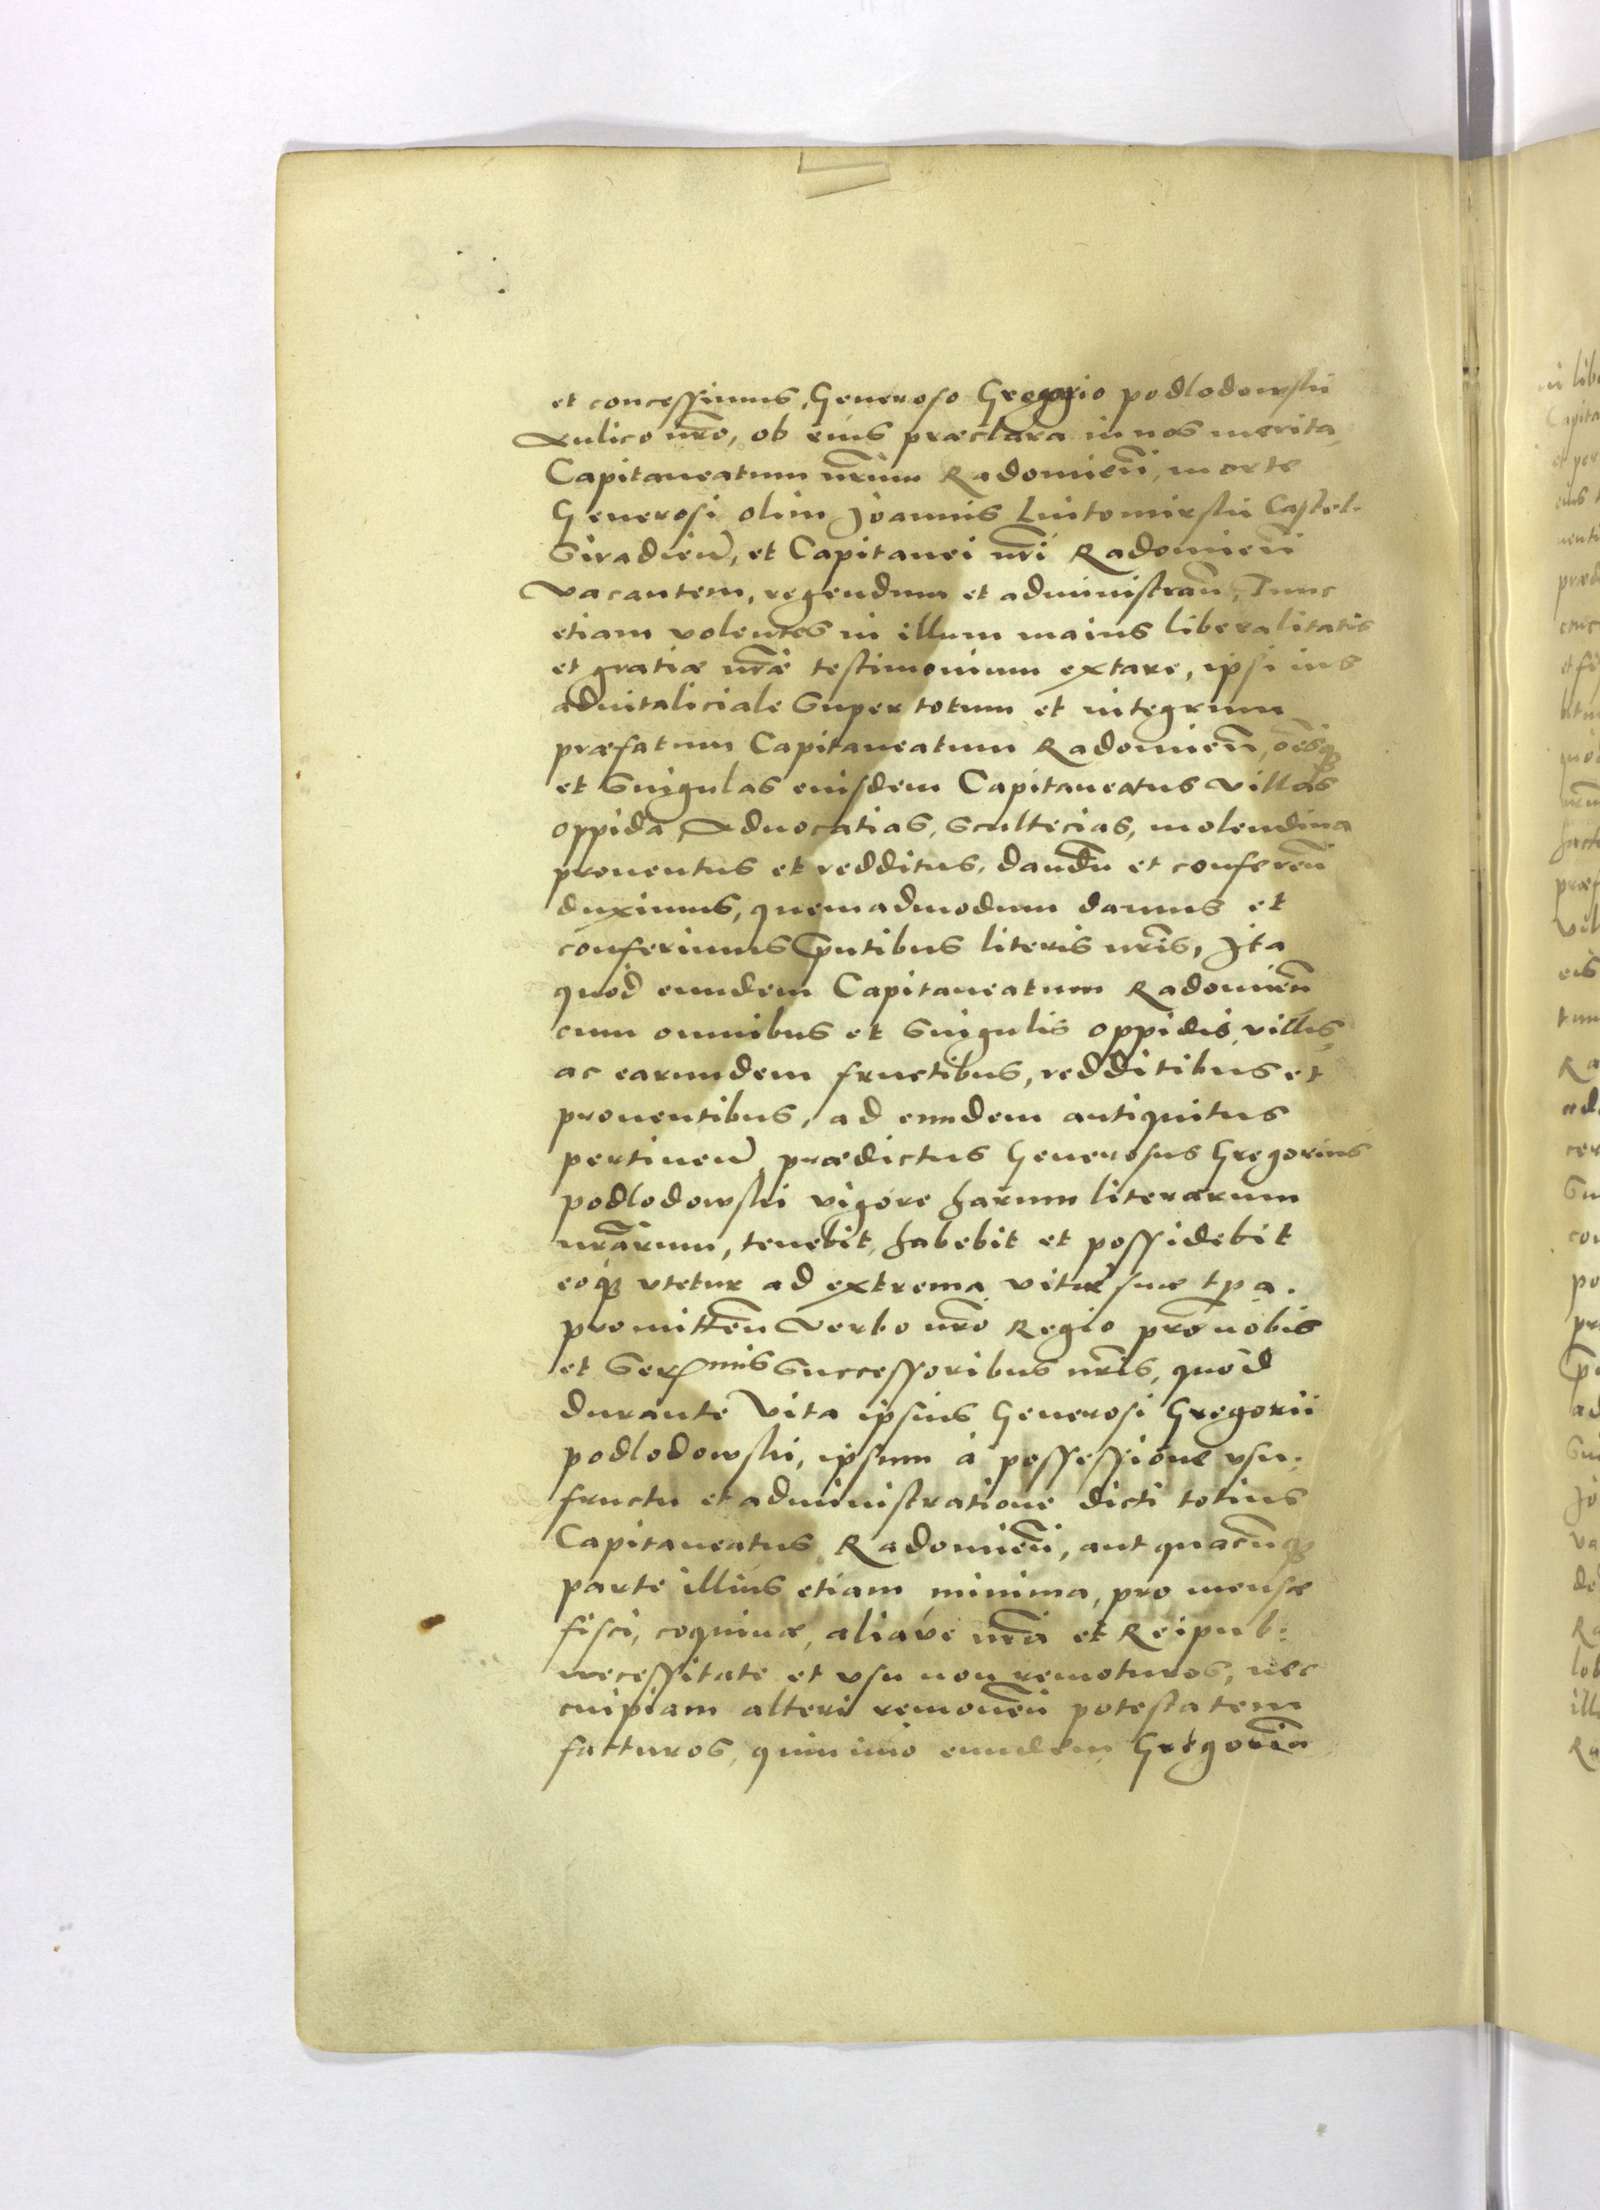 et concessimus, Generoso Gregorio podlodowski
Aulico nr̃o, ob eius præclara in nos merita,
Capitaneatum nr̃um Radomien̄, morte
Generosi olim Joannis Lutomirski Castel.
Siradien̄, et Capitanei nr̃i Radomien̄
Vacantem, regendum et administran̄, Tunc
etiam volentes in illum maius liberalitatis
et gratiæ nr̃æ testimonium extare, ipsi ius
aduitaliciale Super totum et integrum
præfatum Capitaneatum Radomien̄, oēsq₃
et Singulas eiusdem Capitaneatus villas
oppida, Aduocatias, scultecias, molendina
prouentus et redditus, dandū et conferen̄
duximus, quemadmodum damus et
conferimus p̄ntibus literis nr̃is, Ita
quod eundem Capitaneatum Radomien̄
cum omnibus et Singulis oppidis, villis,
ac earundem fructibus, redditibus et
prouentibus, ad eundem antiquitus
pertinen̄, prædictus Generosus Gregorius
podlodowski vigore harum literarum
nr̃arum, tenebit, habebit et possidebit
eoq₃ vtetur ad extrema vitæ suæ tp̄a.
promitten̄ Verbo nr̃o Regio pro nobis
et Ser^mis Successoribus nr̃is, quod
durante Vita ipsius Generosi Gregorii
podlodowski, ipsum à possessione vsu,
fructu et administratione dicti totius
Capitaneatus Radomien̄, aut quacūq₃
parte illius etiam minima, pro mensæ
fisci, coquinæ, aliave nr̃a et Reipub:
necessitate et vsu non remoturos, nec
cuipiam alteri remouen̄ potestatem
facturos, quinimo eundem Gregoriū